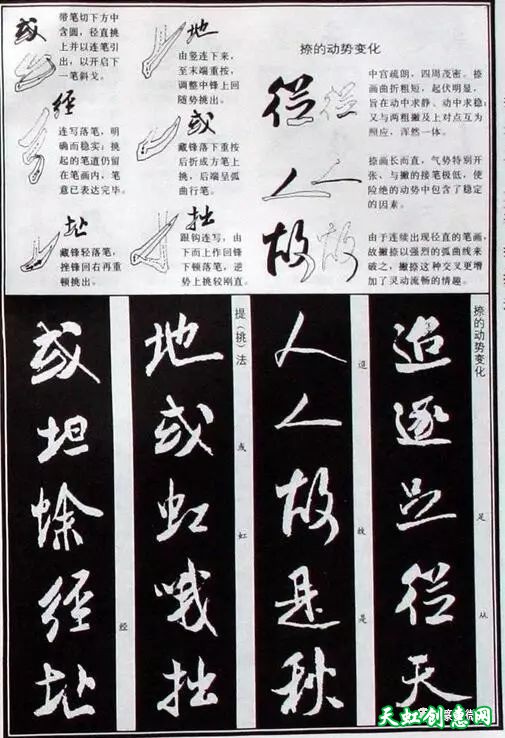 或
带笔切下方中
含圆，径直挑
上并以连笔引
出，以开启下
一笔斜戈。
径
连写落笔，明
确而稳实；挑
起的笔道仍留
在笔画内，笔
意已表达完毕。
址
藏锋轻落笔，
挫锋回右再重
顿挑出。
地
由竖连下来，
至末端重按，
调整中锋上回
随势挑出。
或
藏锋落下重按
后折成方笔上
挑，后端呈弧
曲行笔。
拙
跟钩连写，由
下而上作回锋
下顿落笔，逆
势上挑较刚直。
捺的动势变化
從
中宫疏朗，四周茂密。捺
画曲折粗短，起伏明显，
旨在动中求静。动中求稳
又与两粗撇及上对点互为
照应，浑然一体。
人
捺画长而直，气势特别开
张、与撇的接笔极低，使
险绝的动势中包含了稳定
的因素。
故
由于连续出现径直的笔画，
故撇捺以强烈的弧曲线来
破之，撇捺这种交叉更增
加了灵动流畅的情趣。
捺的动势变化
追逐足從天
足 从
人人故是秋
逗 故 是
提（挑）法
地或虹哦拙
或 虹
或坦蜍径址
经
天虹创意网